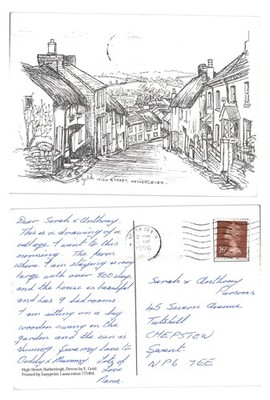 High Street, Hatherleigh
Dear Sarah & Anthony
This is a drawing of a
village I went to this
morning. The farm
where I am staying is very
large with over 800 sheep
and the house is beautiful
and has 9 bedrooms.
I am sitting on a big
wooden swing in the
garden and the sun is
shining. Give my love to
Daddy & Mummy. Lots of
love
Nana.
High Street, Hatherleigh, Devon by E. Gold.
Printed by Eastprint, Launceston 775484
Sarah & Anthony
Parsons
45 Severn Avenue
Tutshill
CHEPSTOW
Gwent.
NP6 7EE